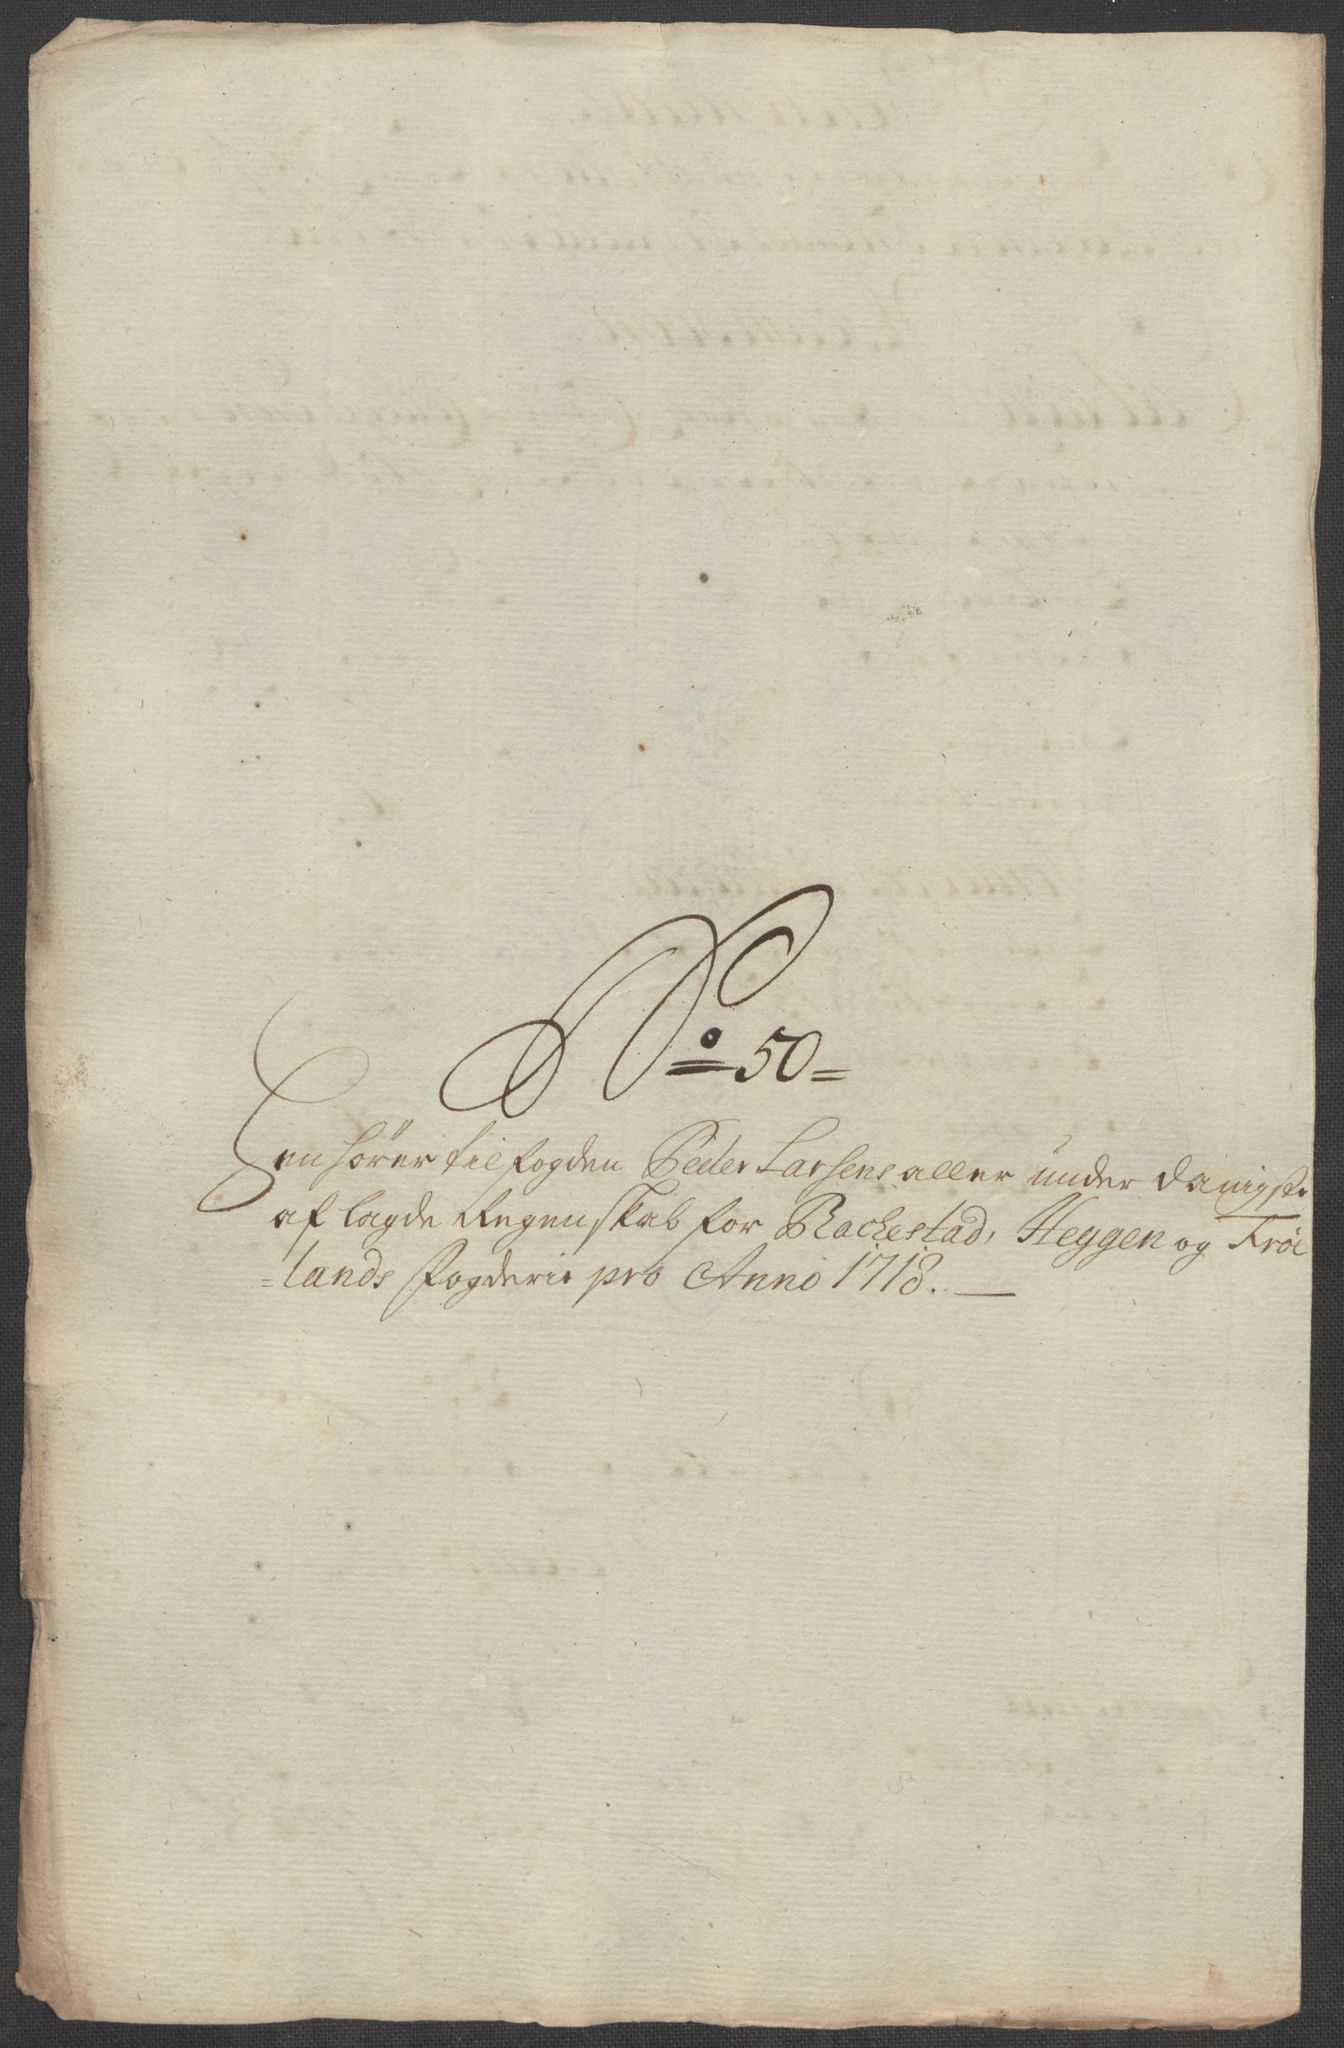 No 50=
Henhörer til fogden Peder Larsens aller under danigste
af lagde Regenskab for Rachestad, Heggen og Fröe
=lands Fogderie pro Anno 1718.